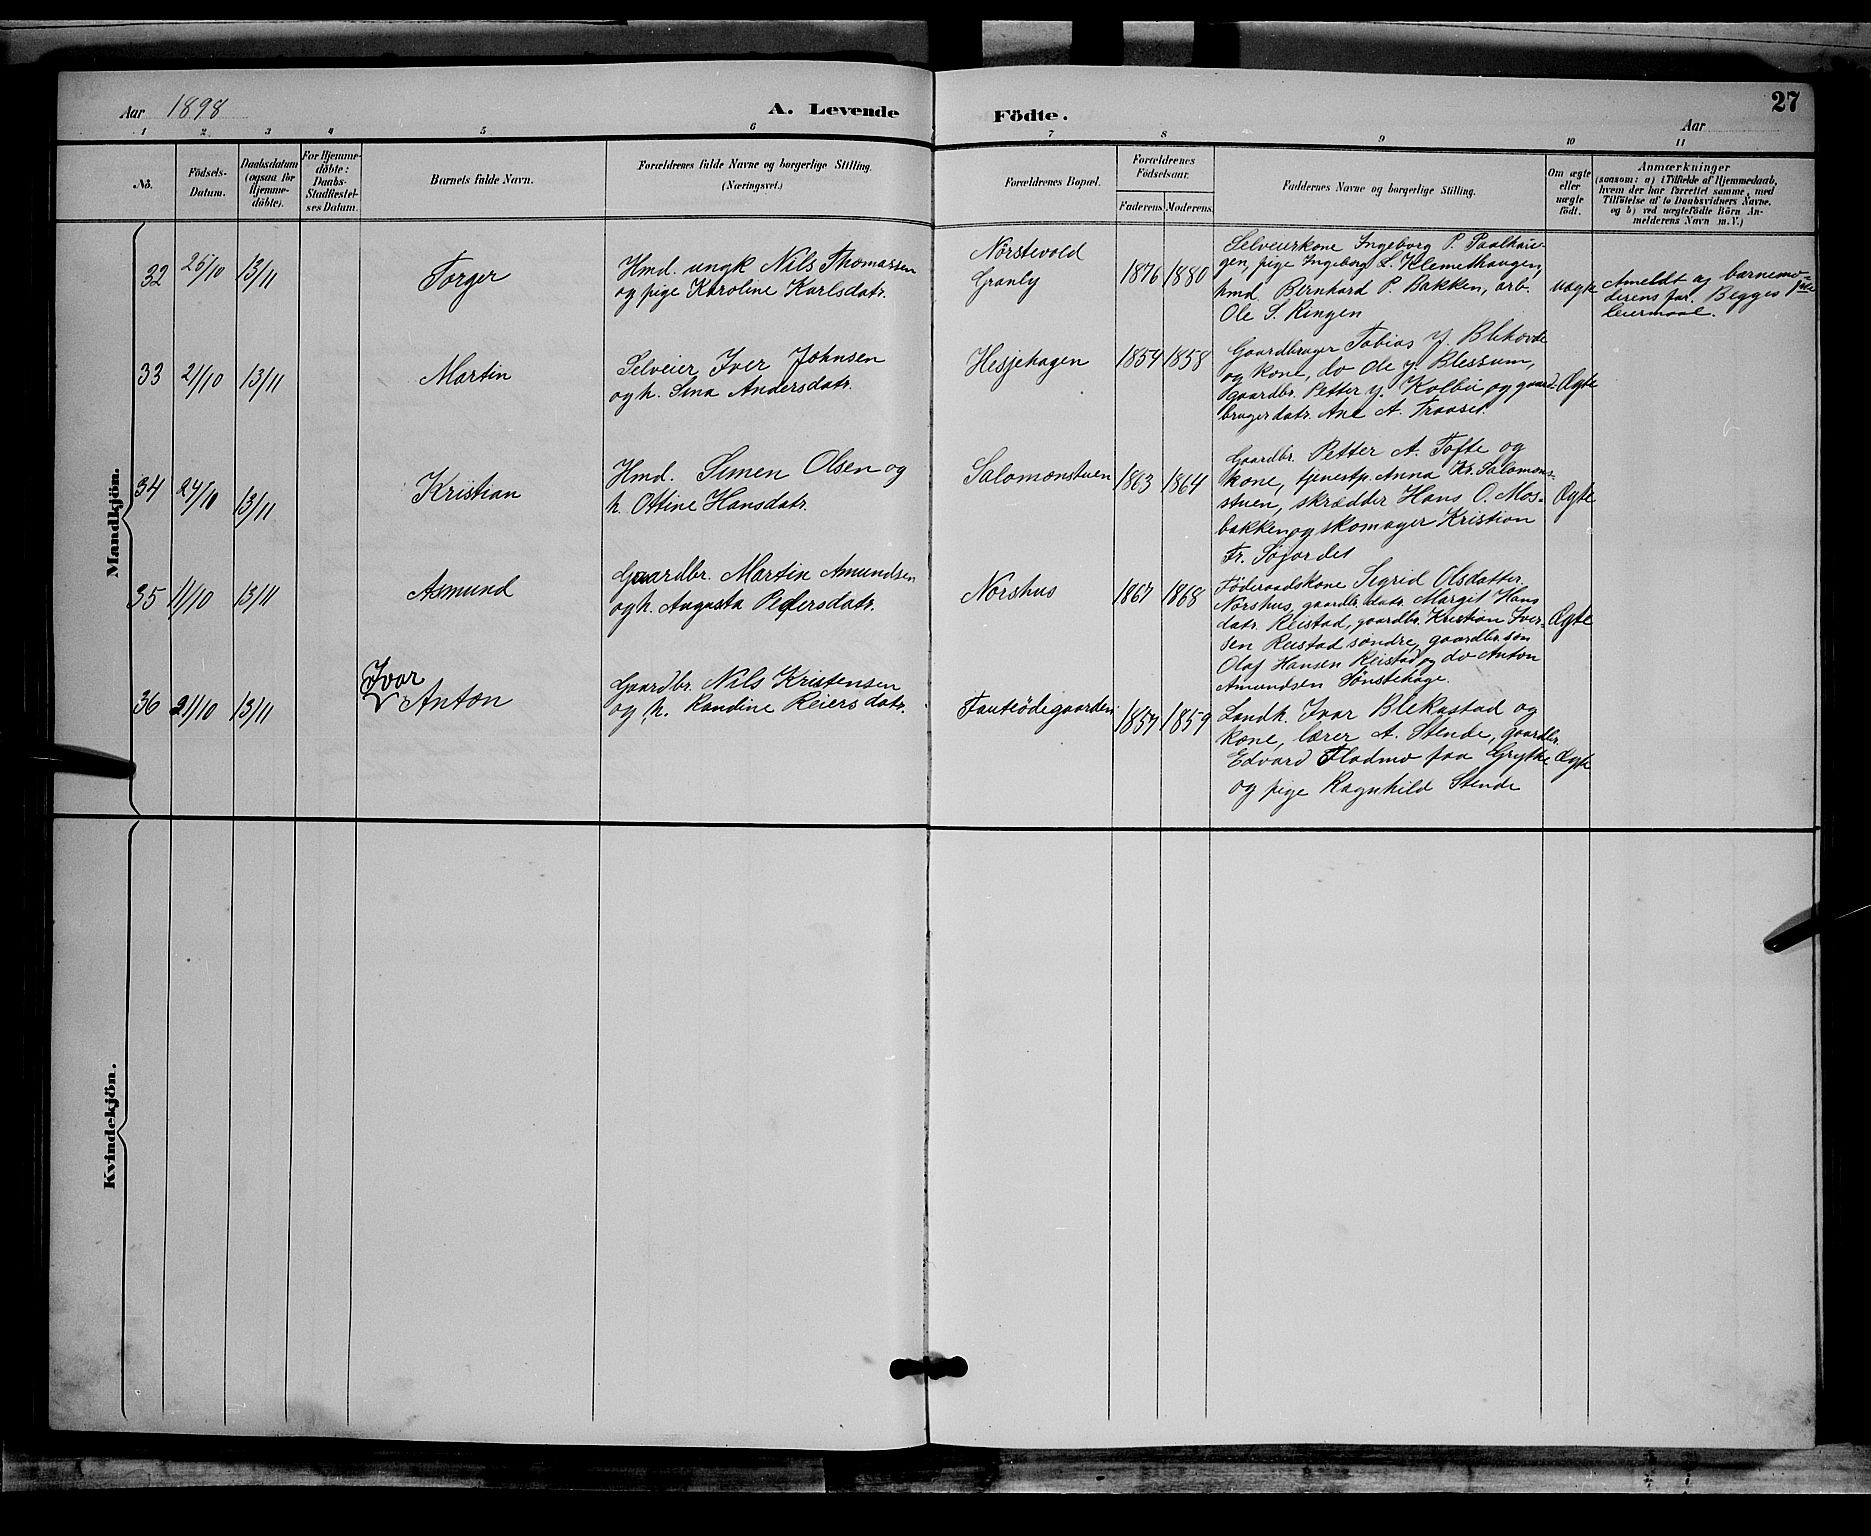 Aar 1898
A. Levende
Födte.
27
Aar
1 2 3 4 5 6 7 8 9 10 11
No.
Födsels-
Datum.
Daabsdatum
(ogsaa for
Hjemme-
döbte).
For Hjemme-
döbte:
Daabs-
Stadfæstel-
ses Datum.
Barnets fulde Navn.
Forældrenes fulde Navne og borgerlige Stilling.
(Næringsvei.)
Forældrenes Bopæl.
Forældrenes
Födselsaar.
Faderens.
Moderens.
Faddernes Navne og borgerlige Stilling.
Om ægte
eller
uægte
födt.
Anmærkninger
(saasom: a) i Tilfælde af Hjemmedaab,
hvem der har forrettet samme, med
Tilföielse af to Daabsvidners Navne.
og b) ved uægtefödte Börn An-
melderens Navn m. V.)
Mandkjön.
32
25/10
13/11
Torger
Hmd. ungk Nils Thomassen
og pige Karoline Karlsdatr.
Norstevold
Granly
1876
1880
Selveierkone Ingeborg P. Paalhau-
gen, pige Ingeborg L. Klemethaugen,
hmd. Bernhard P. Bakken, arb.
Ole S. Ringen
uægte
Anmeldt af barnemo-
derens far. Begges 1ste
leiermaal.
33
21/10
13/11
Martin
Selveier Iver Johnsen
og h. Sina Andersdatr.
Hesjehagen
1854
1858
Gaardbruger Tobias J. Blihovde
og kone, do Ole J. Blessum,
gaardbr. Petter J. Kolbu og gaard-
brugerdatr. Ane A. Traaset.
Ægte
34
24/10
13/11
Kristian
Hmd. Simen Olsen og
h. Ottine Hansdatr.
Salomonstuen
1863
1864
Gaardbr. Petter A. Tofte og
kone, tjenestp. Anna Kr. Salomons-
stuen, skrædder Hans O. Mos-
bakken og skomager Kristian
Fr. Söjordet
Ægte
35
11/10
13/11
Asmund
Gaardbr. Martin Amundsen
og h. Augusta Pedersdatr.
Norshus
1867
1868
Föderaadskone Sigrid Olsdatter
Norshus, gaardbr. datr. Margit Hans
datr. Reistad, gaardbr. Kristian Iver-
sen Reistad söndre, gaardbr. sön
Olaf Hansen Reistad og do Anton
Amundsen Sönstehage.
Ægte
36
21/10
13/11
Ivar
V Anton
Gaardbr. Nils Kristensen
og h. Randine Reiersdatr.
Fauteödegaarden
1857
1859
Landh. Ivar Blekastad og
kone, lærer A. Stende, gaardbr.
Edvard Fladmo paa Grytke
og pige Ragnhild Stende
Ægte
Kvindekjön.